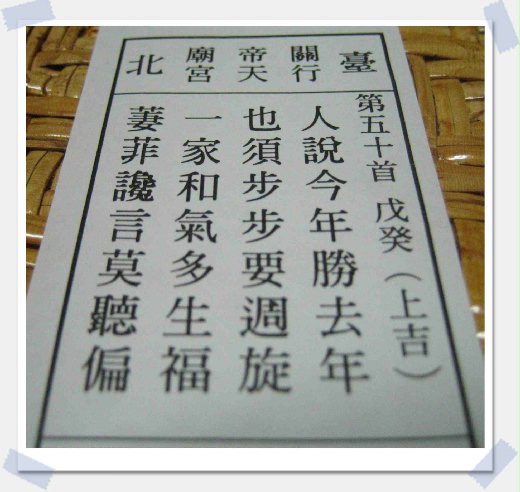 臺 關帝廟 行天宮 北
第五十首 戊癸(上吉)
人說今年勝去年
也須步步要週旋
一家和氣多生福
萋菲讒言莫聽偏